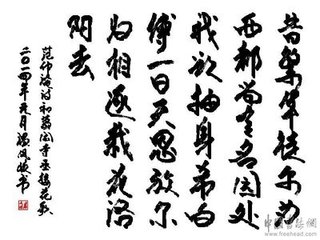 昔繁华徒尔为
西都尚有名园处
我欲抽身希白
傅一日天恩放尔
归相逐栽花洛
阳去
范仲淹诗和葛闳寺丞接花歌
二〇一四年元月
www.freehead.com